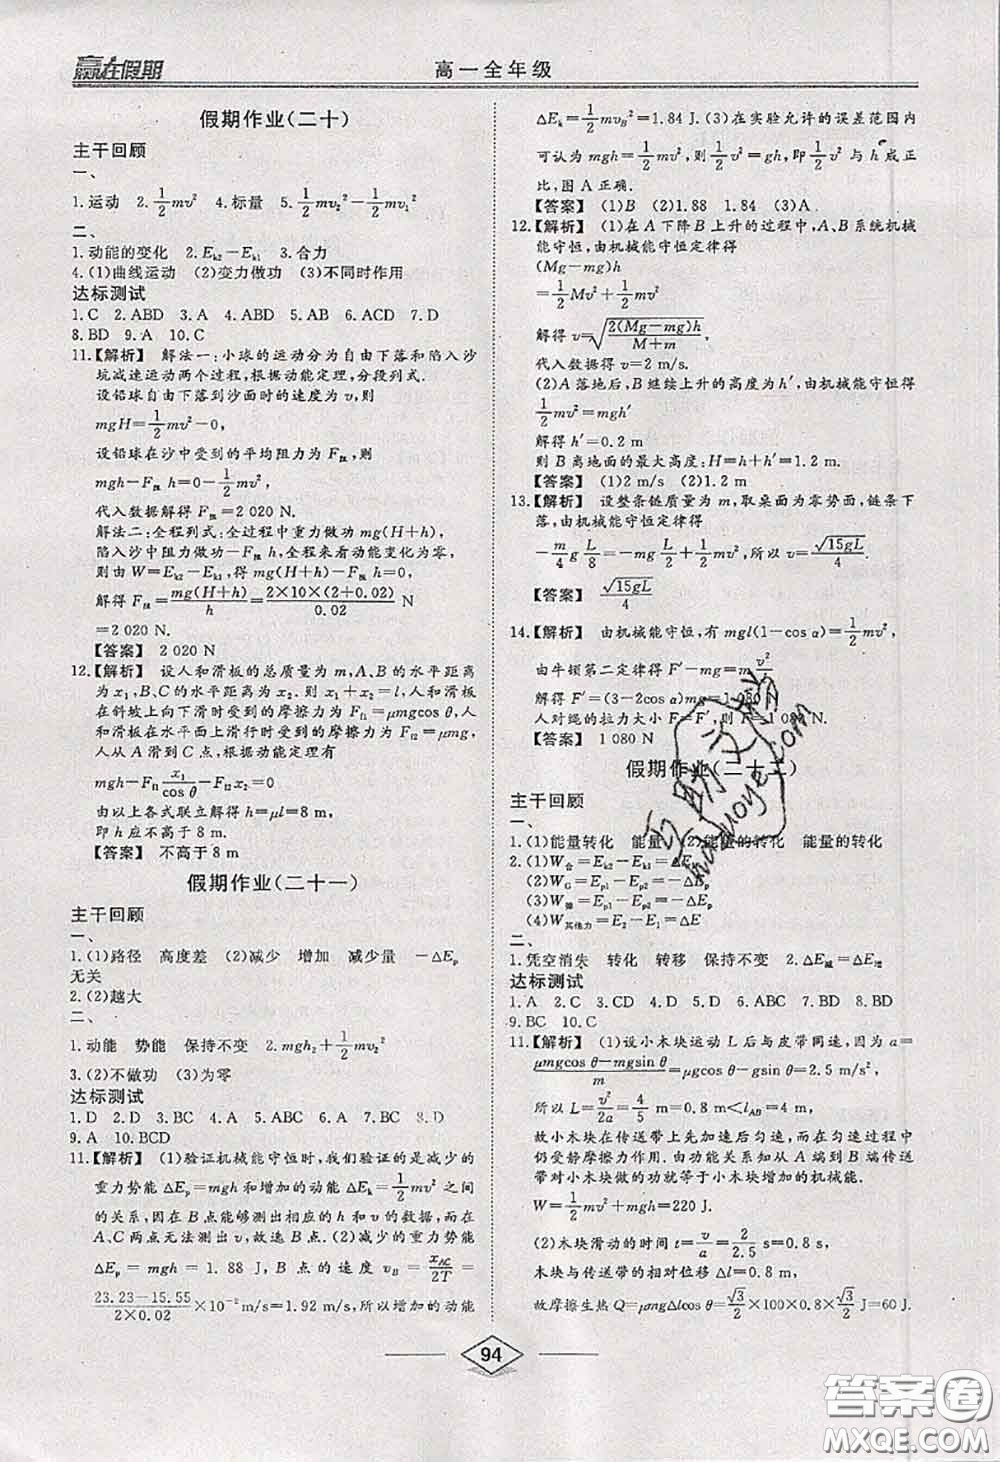 赢在假期
高一全年级
假期作业(二十)
主干回顾
一、
1.运动 2.½mv² 4.标量 5.½mv₂²−½mv₁²
二、
1.动能的变化 2.Eₖ₂−Eₖ₁ 3.合力
4.(1)曲线运动 (2)变力做功 (3)不同时作用
达标测试
1.C 2.ABD 3.A 4.A 5.ABD 6.ACD 7.D
8.BD 9.A 10.C
11.【解析】 解法一:小球的运动分为自由下落和陷入沙
坑减速运动两个过程,根据动能定理,分段列式.
设铅球自由下落到沙面时的速度为v,则
mgH=½mv²−0,
设铅球在沙中受到的平均阻力为F阻,则
mgh−F阻h=0−½mv²,
代入数据解得F阻=2 020 N.
解法二:全程列式:全过程中重力做功mg(H+h),
陷入沙中阻力做功−F阻h,全程来看动能变化为零,
则由W=Eₖ₂−Eₖ₁,得mg(H+h)−F阻h=0
解得F阻=mg(H+h)/h=2×10×(2+0.02)/0.02 N
=2 020 N.
【答案】 2 020 N
12.【解析】 设人和滑板的总质量为m,AC的水平距离
为x₁,B、C的水平距离为x₂.则x₁+x₂=l,人和滑板
在斜坡上向下滑时受到的摩擦力为Ff1=μmgcos θ,人
和滑板在水平面上滑行时受到的摩擦力为Ff2=μmg,
人从A滑到C点,根据动能定理有
mgh−Ff1 x₁/cos θ−Ff2x₂=0
由以上各式联立解得h=μl=8 m,
即h应不高于8 m.
【答案】 不高于8 m
假期作业(二十一)
主干回顾
一、
1.(1)路径 高度差 (2)减少 增加 减少量 −ΔEₚ
无关
2.(2)越大
二、
1.动能 势能 保持不变 2.mgh₂+½mv₂²
3.(2)不做功 (3)为零
达标测试
1.D 2.D 3.BC 4.A 5.ABC 6.A 7.BC 8.D
9.A 10.BCD
11.【解析】 (1)验证机械能守恒时,我们验证的是减少的
重力势能ΔEₚ=mgh和增加的动能ΔEₖ=½mv²之间
的关系,因在B点能够测出相应的h和v的数据,而在
A、C两点无法测出,故选B点.(2)减少的重力势能
ΔEₚ=mgh=1.88 J,B点的速度v_B=x_AC/2T=
(23.23−15.55)/(2×0.02)×10⁻² m/s=1.92 m/s,所以增加的动能
ΔEₖ=½mv_B²=1.84 J.(3)在实验允许的误差范围内
可认为mgh=½mv²,则½v²=gh,即½v²与h成正
比,图A正确.
【答案】 (1)B (2)1.88 1.84 (3)A.
12.【解析】 (1)在A下降B上升的过程中,A、B系统机械
能守恒,由机械能守恒定律得
(Mg−mg)h
=½Mv²+½mv²
解得v=√(2(Mg−mg)h/(M+m))
代入数据解得v=2 m/s.
(2)A落地后,B继续上升的高度为h′,由机械能守恒得
½mv²=mgh′
解得h′=0.2 m
则B离地面的最大高度:H=h+h′=1.2 m.
【答案】 (1)2 m/s (2)1.2 m
13.【解析】 设整条链质量为m,取桌面为零势面,链条下
落,由机械能守恒定律得
−(m/4)g(L/8)=−mg(L/2)+½mv²,所以v=√(15gL)/4.
【答案】 √(15gL)/4
14.【解析】 由机械能守恒,有mgl(1−cos α)=½mv²,
由牛顿第二定律得F′−mg=m v²/l
解得F′=(3−2cos α)mg=1 080 N
人对绳的拉力大小F=F′,则F=1 080 N.
【答案】 1 080 N
假期作业(二十二)
主干回顾
一、
1.(1)能量转化 能量 (2)能量的转化 能量的转化
2.(1)W合=Eₖ₂−Eₖ₁=ΔEₖ
(2)W_G=Eₚ₁−Eₚ₂=−ΔEₚ
(3)W弹=Eₚ₁−Eₚ₂=−ΔEₚ
(4)W其他力=E₂−E₁=ΔE
二、
1.凭空消失 转化 转移 保持不变 2.ΔE减=ΔE增
达标测试
1.A 2.C 3.CD 4.D 5.D 6.ABC 7.BD 8.BD
9.BC 10.C
11.【解析】 (1)设小木块运动L后与皮带同速,因a=
(μmgcos θ−mgsin θ)/m=μgcos θ−gsin θ=2.5 m/s²,
所以L=v²/2a=4/5 m=0.8 m<l_AB=4 m,
故小木块在传送带上先加速后匀速,而在匀速过程中
仍受静摩擦力作用.由功能关系知从A端到B端传送带
对小木块做的功就等于小木块增加的机械能.
W=½mv²+mgh=220 J.
(2)木块滑动的时间t=v/a=2/2.5 s=0.8 s,
木块与传送带的相对位移Δl=0.8 m,
故摩擦生热Q=μmgΔlcos θ=√3/2×100×0.8×√3/2 J=60 J.
94
互助文档
huzuoye.com
答案圈
MXQE.COM